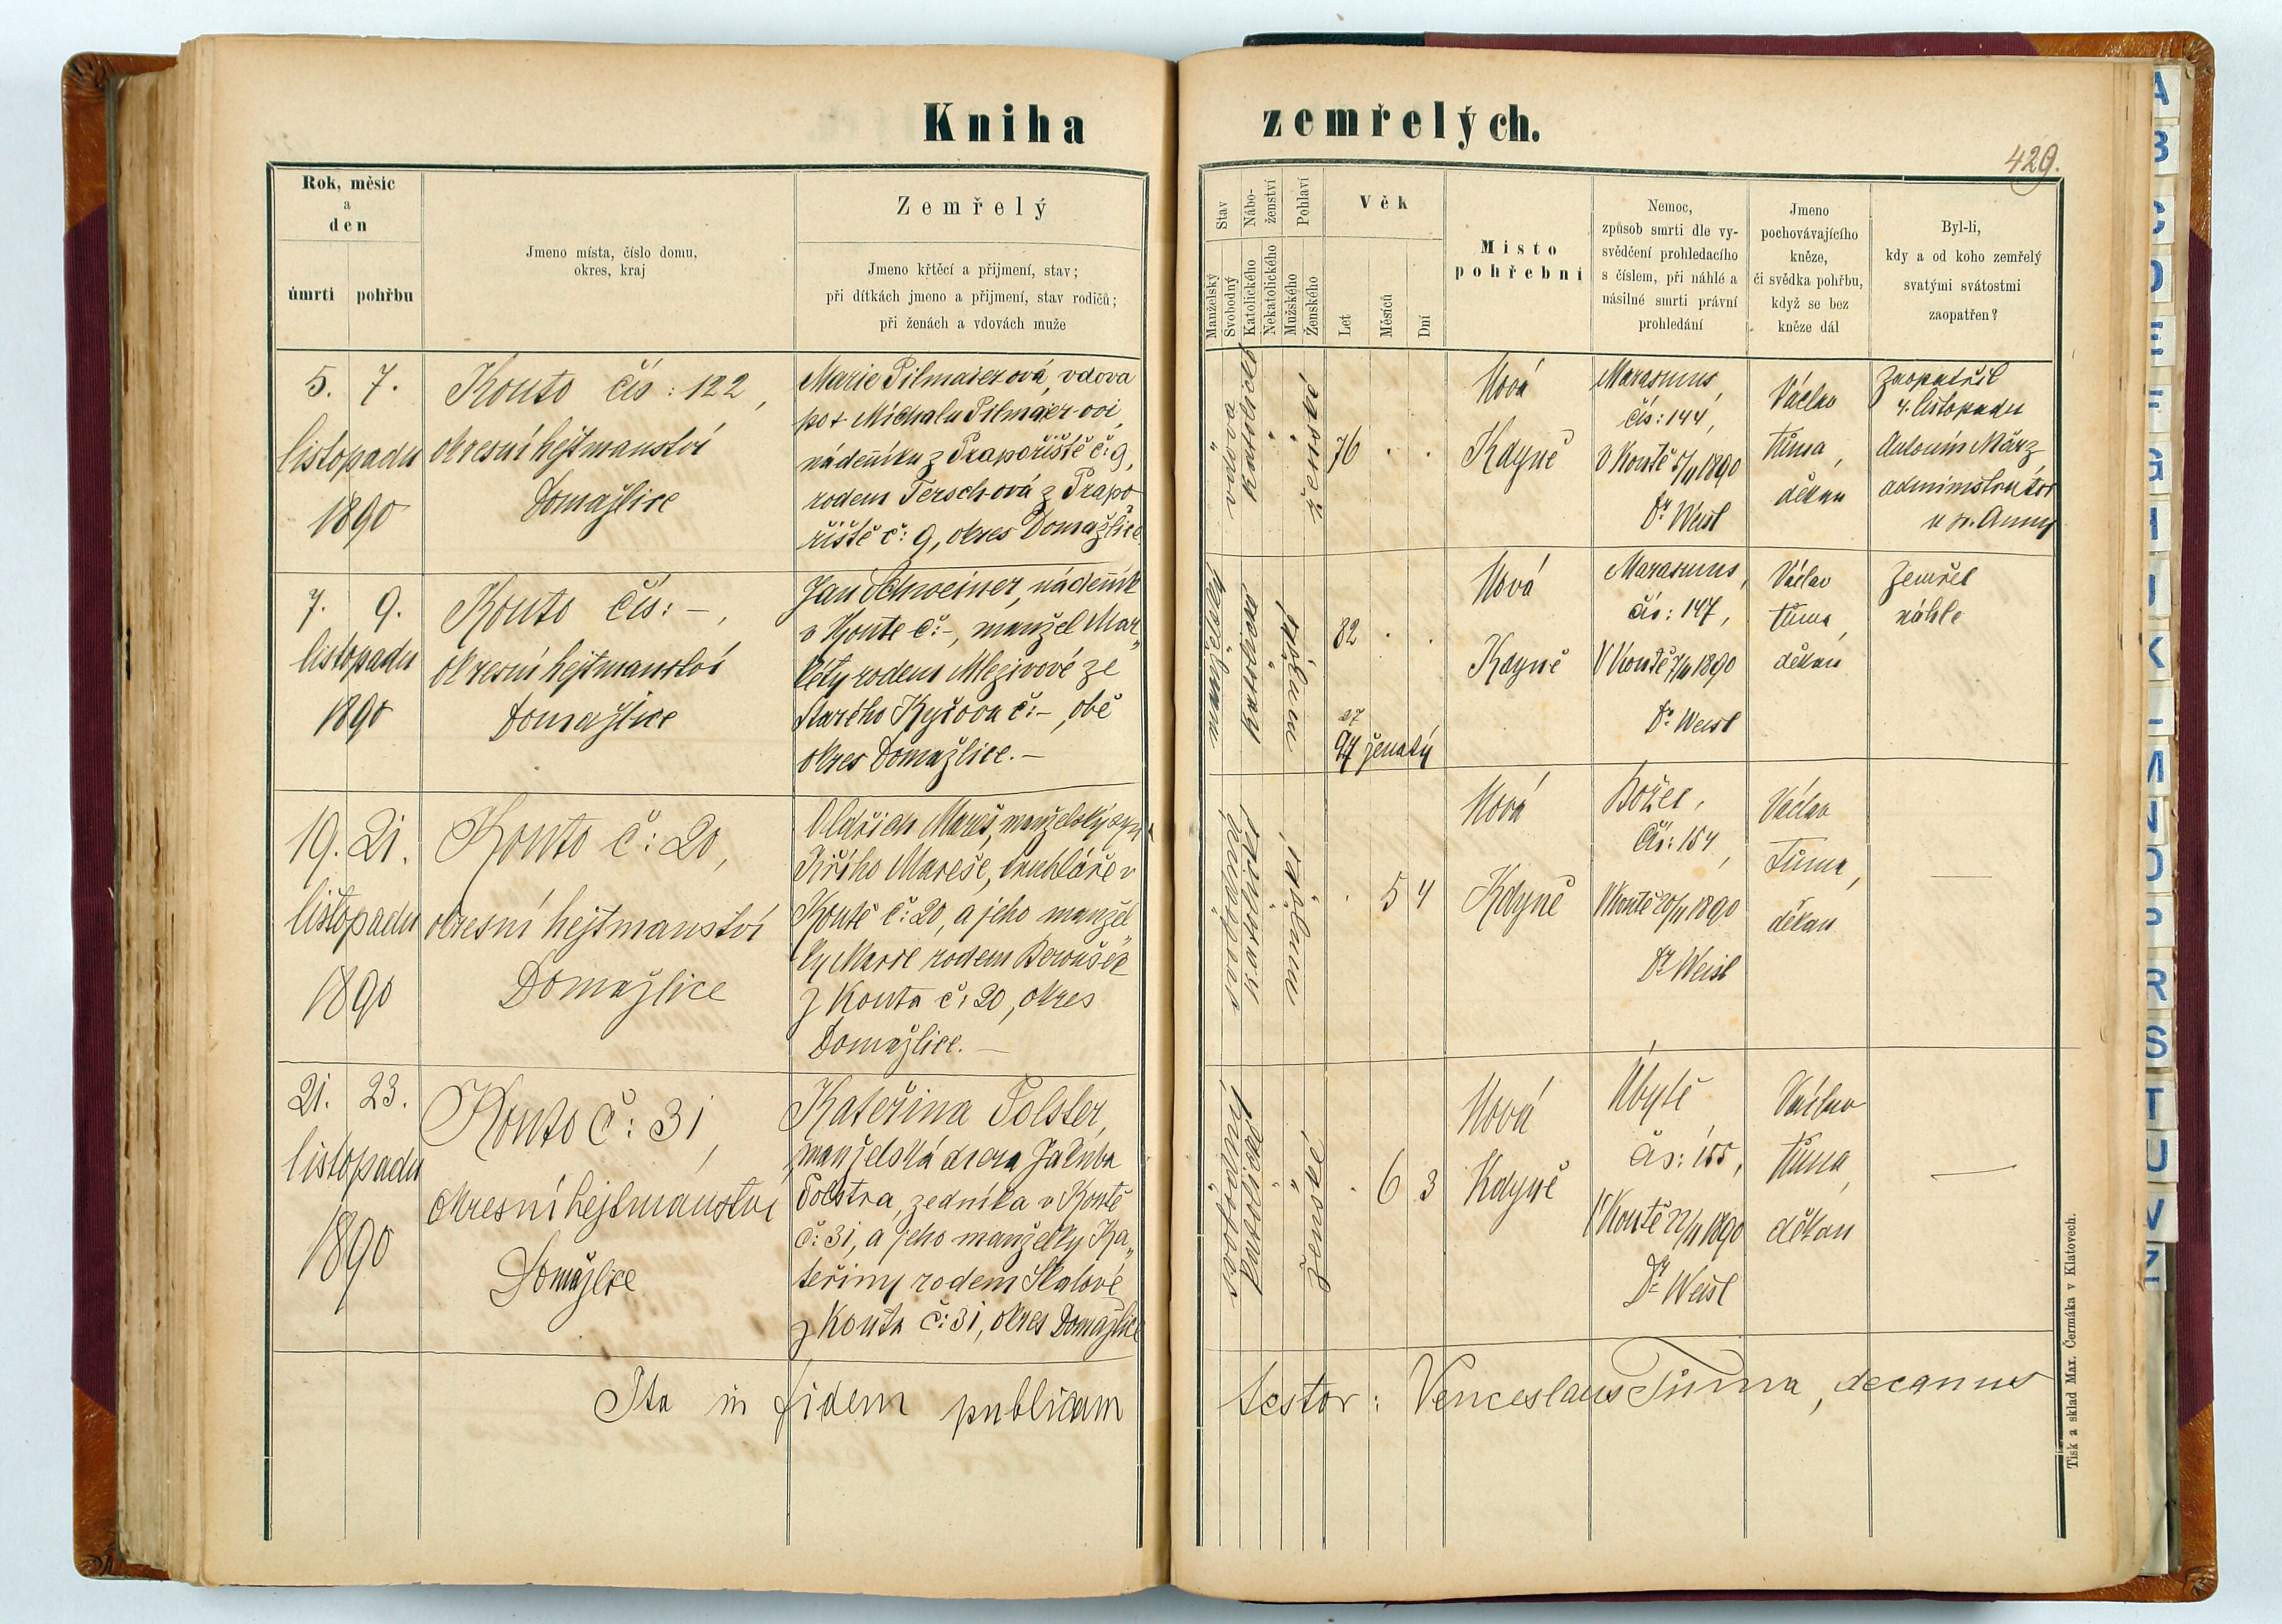 Kniha zemřelých.
429.
Rok, měsíc
a
den
úmrtí pohřbu
Jmeno místa, číslo domu,
okres, kraj
Zemřelý
Jmeno křtěcí a přijmení, stav;
při dítkách jmeno a přijmení, stav rodičů;
při ženách a vdovách muže
Stav
Manželský
Svobodný
Nábo-
ženství
Katolického
Nekatolického
Pohlaví
Mužského
Ženského
Věk
Let
Měsíců
Dní
Místo
pohřební
Nemoc,
způsob smrti dle vy-
svědčení prohledacího
s číslem, při náhlé a
násilné smrti právní
prohledání
Jmeno
pochovávajícího
kněze,
či svědka pohřbu,
když se bez
kněze dál
Byl-li,
kdy a od koho zemřelý
svatými svátostmi
zaopatřen?
5. 7.
listopadu
1890
Kouto čís: 122,
okresní hejtmanství
Domažlice
Marie Pilmaierová, vdova
po + Michalu Pilmaier-ovi,
nádenníku z Prapořiště č: 9,
rodem Tersch-ová z Prapo-
řiště č: 9, okres Domažlice.
vdova
katolické
ženské
76 . .
Nová
Kdyně
Marasmus,
čís: 144,
V Koutě 5/11 1890
Dr Weisl
Václav
Tůma,
děkan
Zaopatřil
4. listopadu
Antonín März
administrátor
u sv. Anny
7. 9.
listopadu
1890
Kouto čís: -,
okresní hejtmanství
Domažlice
Jan Schweiner, nádenník
v Koutě č: -, manžel Mar-
kéty rodem Mlezivové ze
Starého Kyčova č: -, obě
okres Domažlice. -
manželské
katolické
mužské
82 . .
27
94 ženatý
Nová
Kdyně
Marasmus,
čís: 147,
V Koutě 7/11 1890
Dr Weisl
Václav
Tůma,
děkan
Zemřel
náhle
19. 21.
listopadu
1890
Kouto č: 20,
okresní hejtmanství
Domažlice
Oldřich Mareš, manželský syn
Jiřího Mareše, truhláře v
Koutě č: 20, a jeho manžel-
ky Marie rodem Beroušek
z Kouta č: 20, okres
Domažlice. -
svobodný
katolické
mužské
. 5 4
Nová
Kdyně
Božec,
Čís: 154,
V Koutě 20/11 1890
Dr Weisl
Václav
Tůma,
děkan
—
21. 23.
listopadu
1890
Kouto č: 31,
okresní hejtmanství
Domažlice
Kateřina Polster,
manželská dcera Jakuba
Polstra, zedníka v Koutě
č: 31, a jeho manželky Ka-
teřiny rodem Skalové
z Kouta č: 31, okres Domažlice
svobodný
katolické
ženské
. 6 3
Nová
Kdyně
Úbytě
čís: 155,
V Koutě 22/11 1890
Dr Weisl
Václav
Tůma,
děkan
—
Ita in fidem publicam testor: Venceslaus Tůma, decanus
Tisk a sklad Max. Čermáka v Klatovech.
A
B
C
D
E
F
G
H
I
K
L
M
N
O
P
R
S
T
U
V
Z